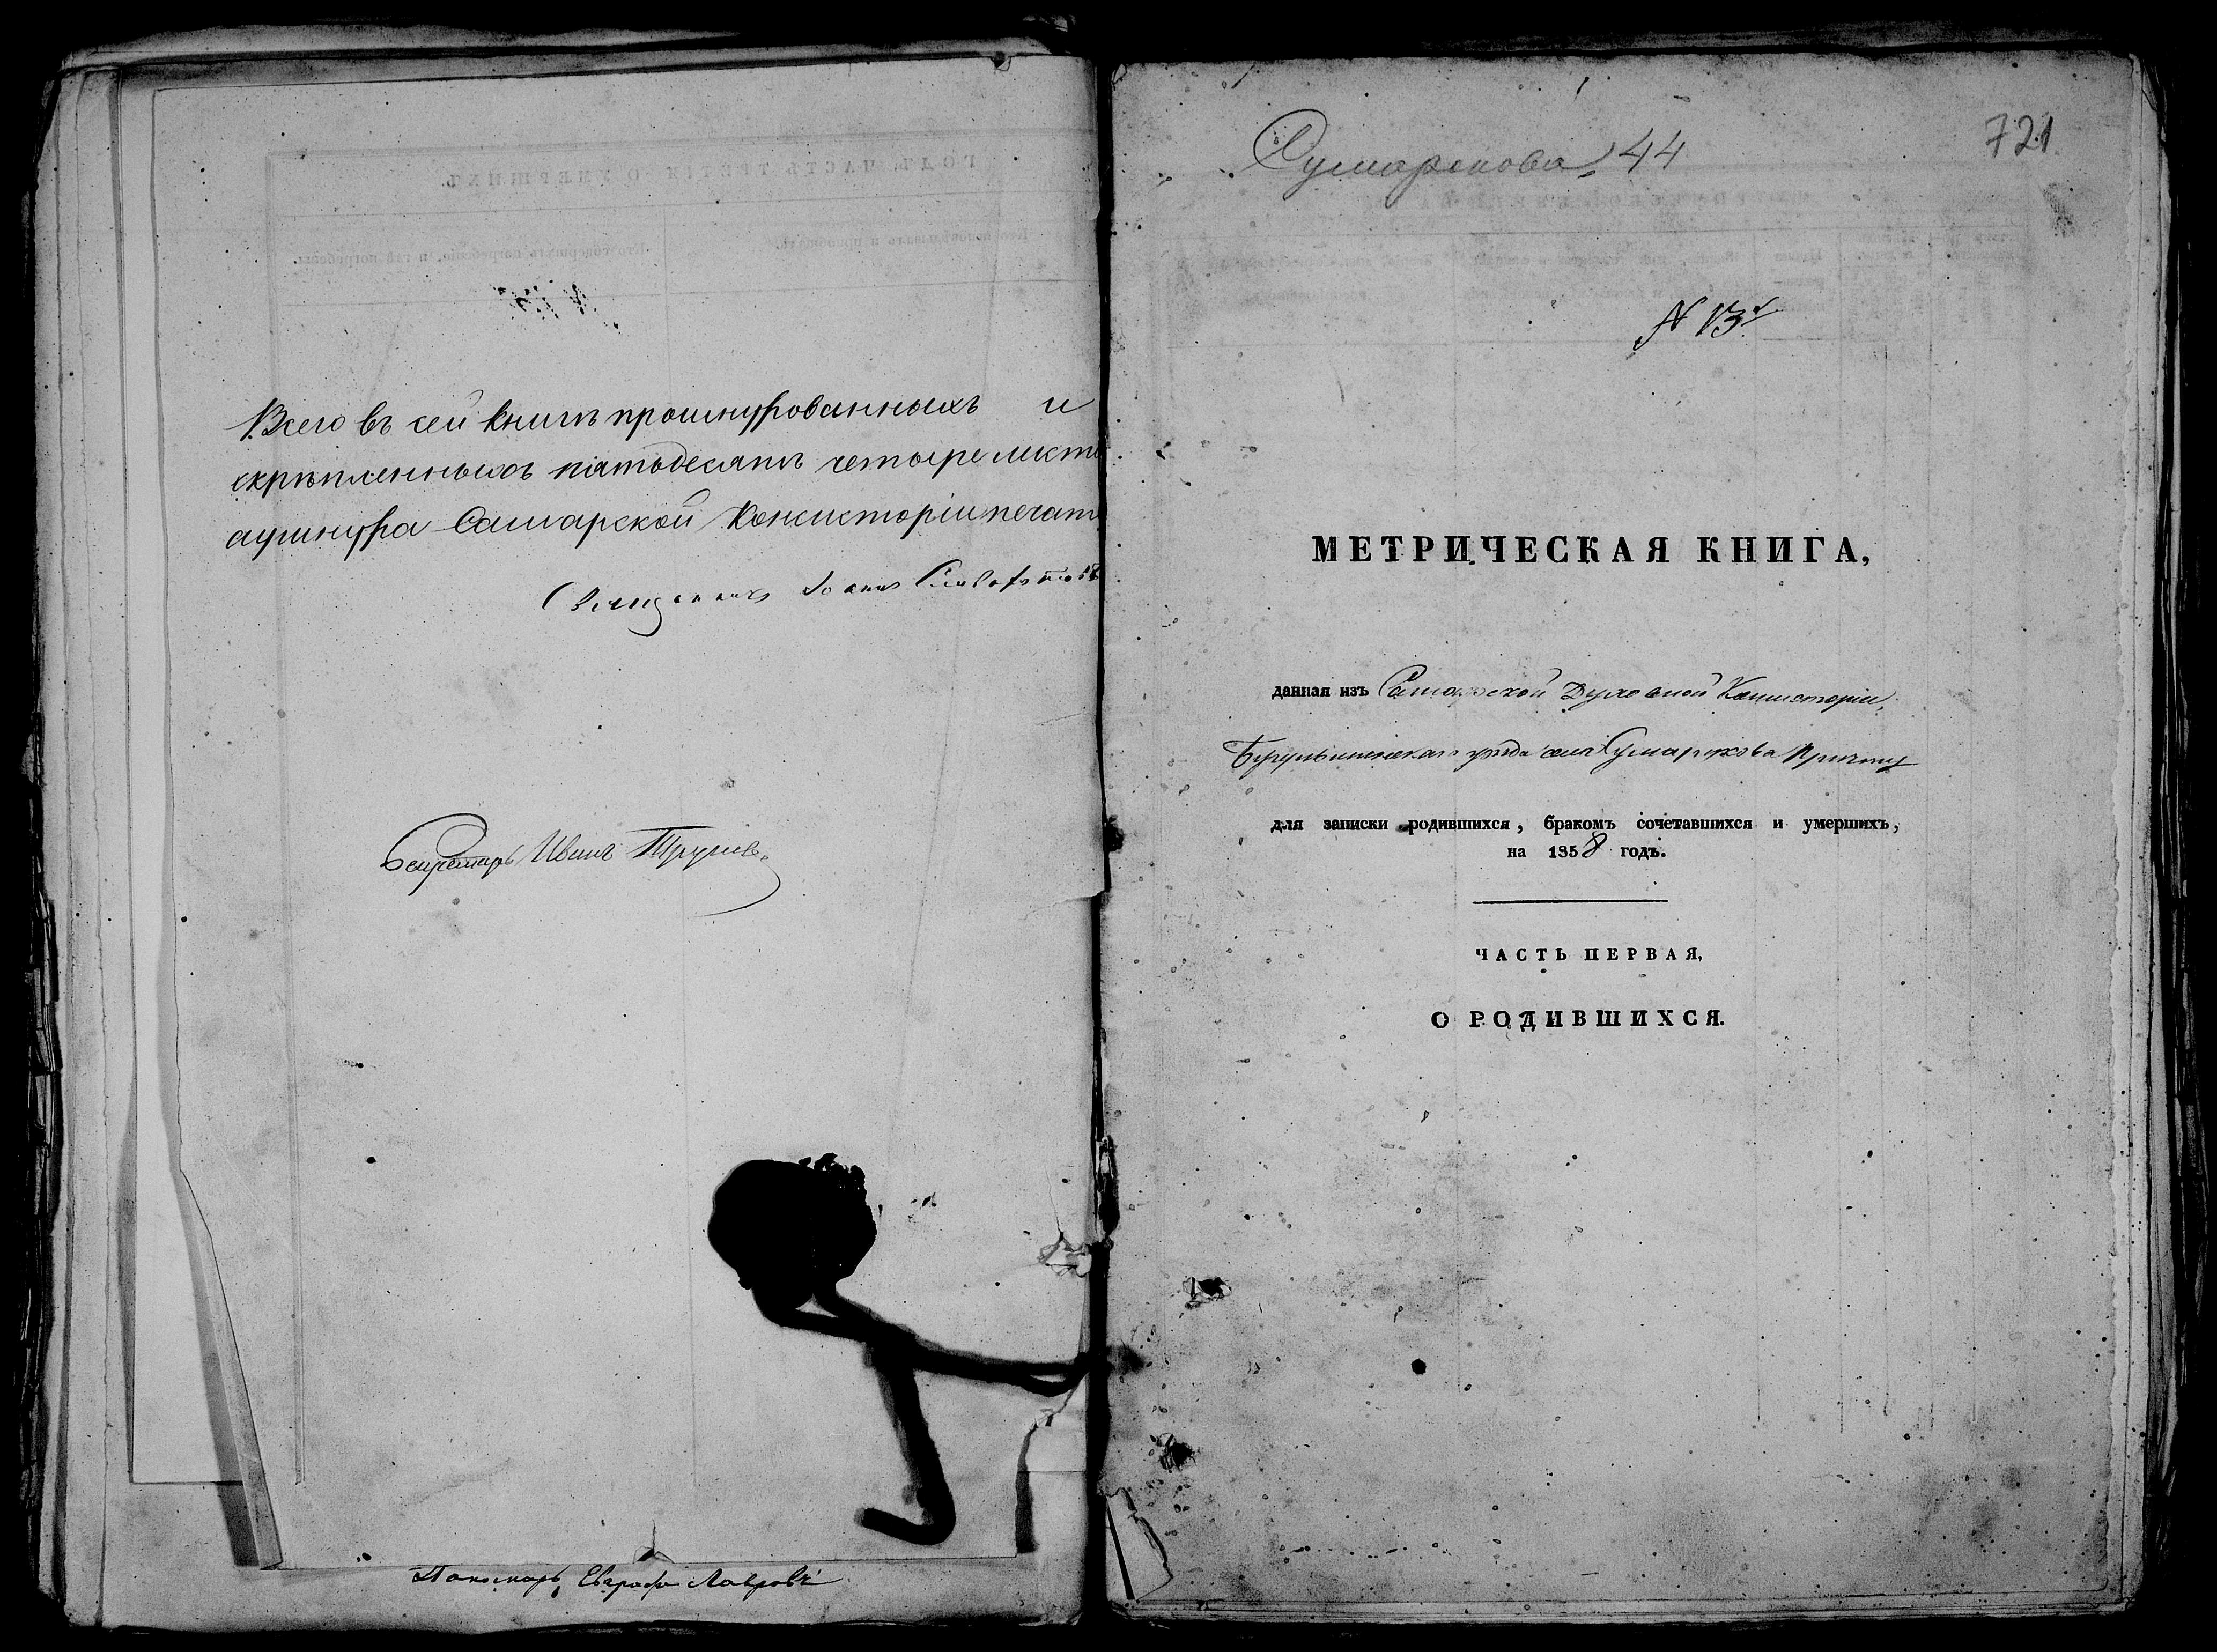 Всего въ сей книгѣ прошнурованныхъ и
скрѣпленныхъ пятьдесятъ четыре листа
а у шнура Самарской Консисторіи печать
Священникъ Іоаннъ
Секретарь Иванъ
Пономарь Евграфъ Лавровъ
Сумарокова 44
721
N 13й
МЕТРИЧЕСКАЯ КНИГА,
данная изъ Самарской Духовной Консисторіи,
Бугульминскаго уѣзда села Сумарокова Причту
для записки родившихся, бракомъ сочетавшихся и умершихъ,
на 1858 годъ.
ЧАСТЬ ПЕРВАЯ,
О РОДИВШИХСЯ.